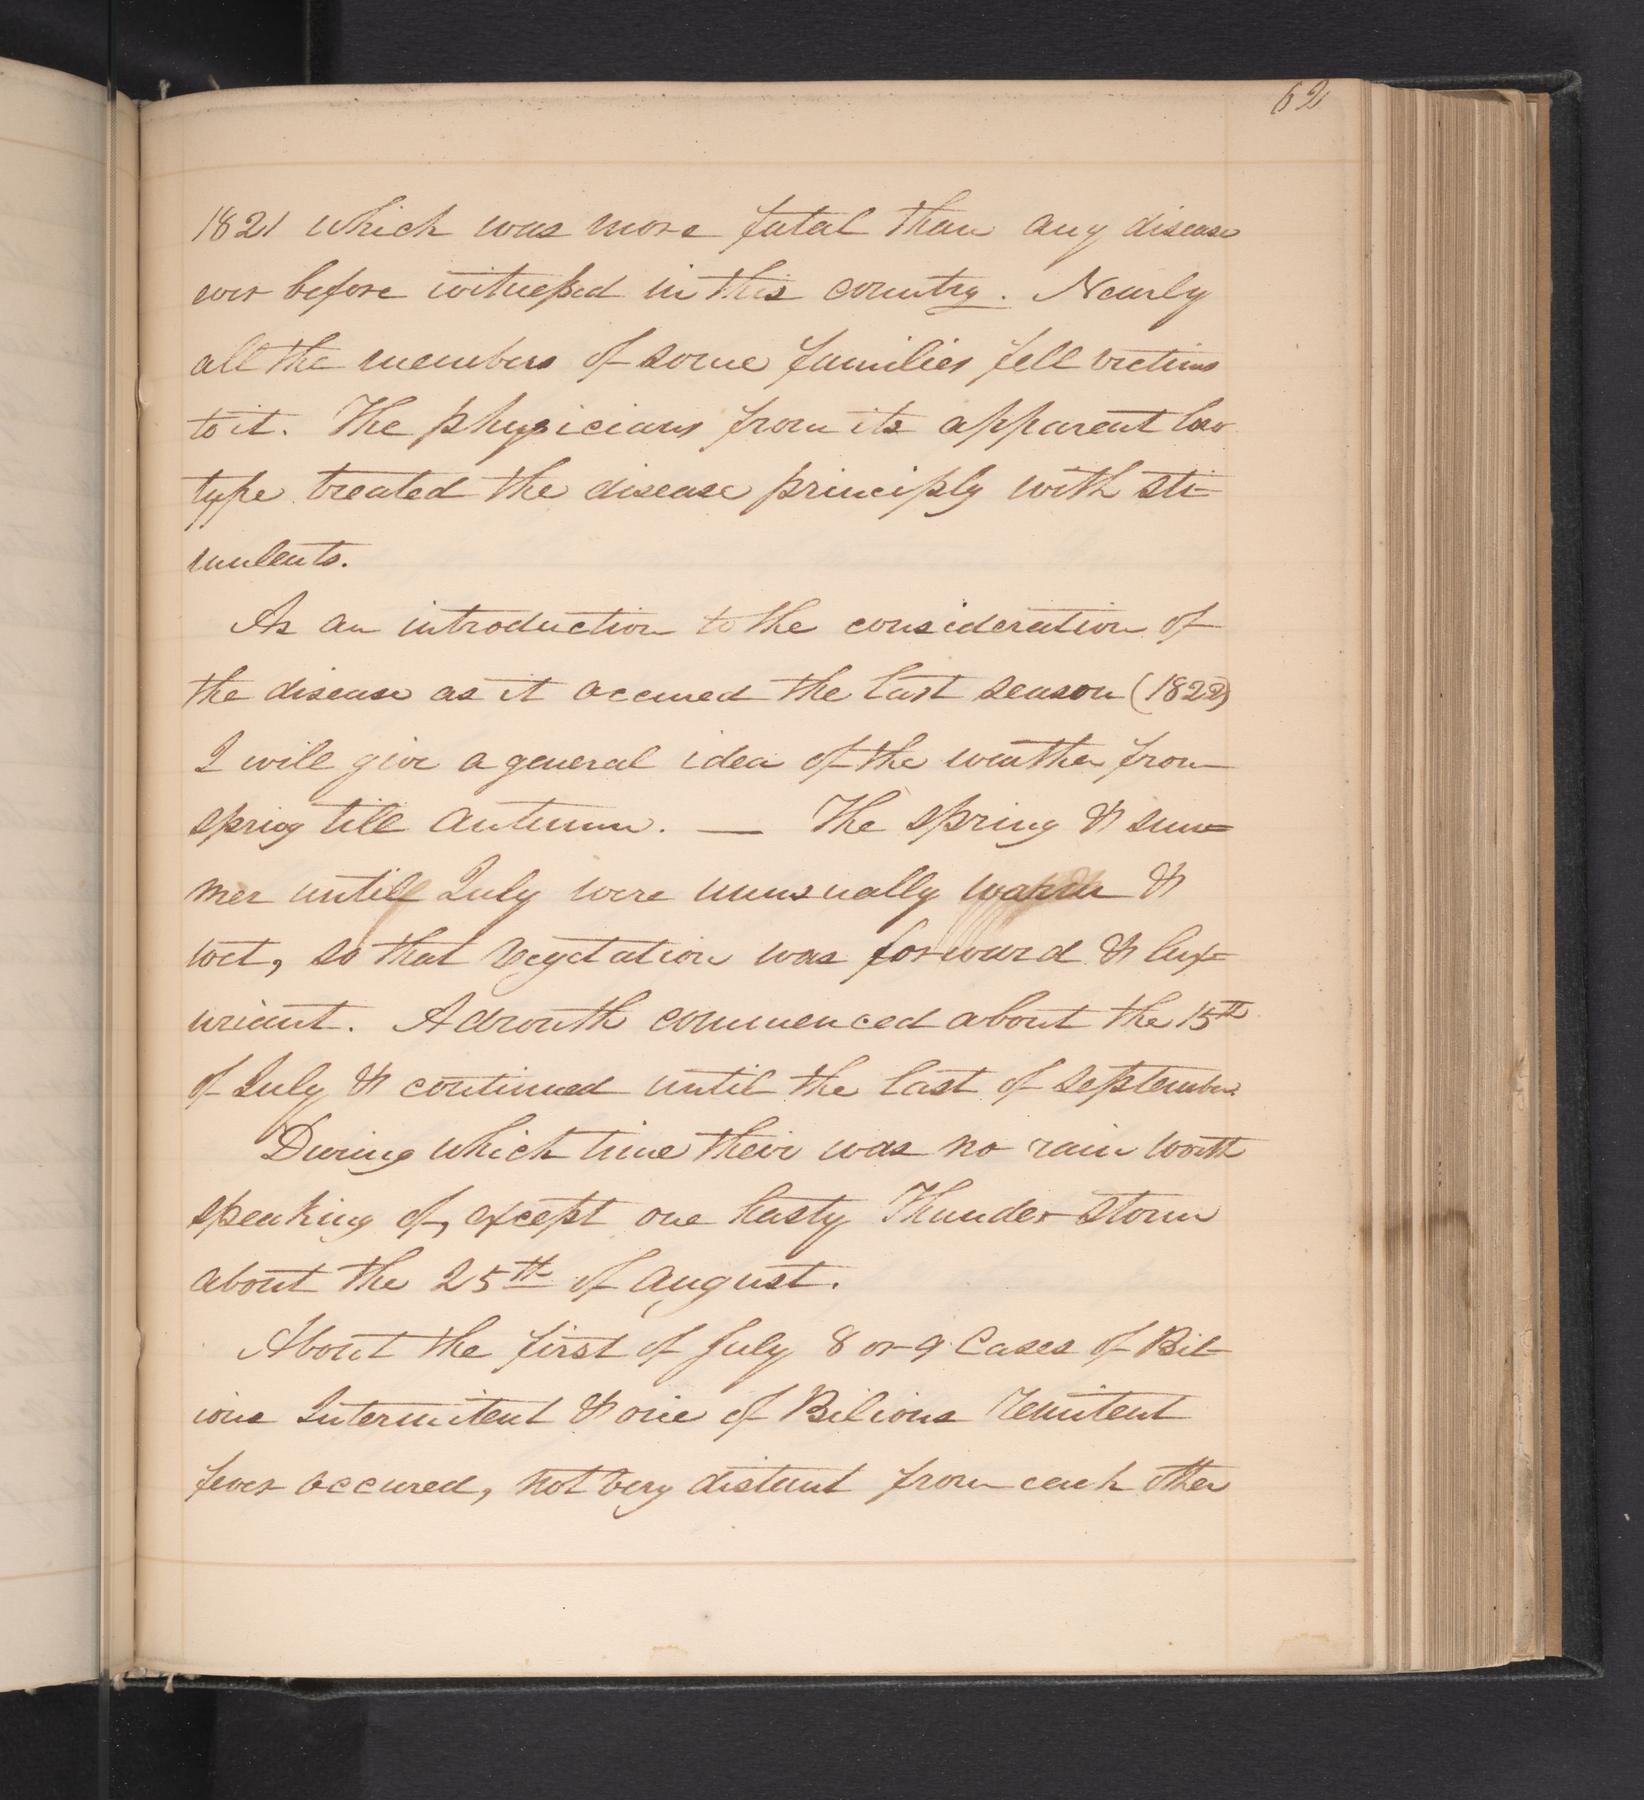 62
1821 which was more fatal than any disease
ever before witnessed in this country. Nearly
all the members of some families fell victims
to it. The physicians from its apparent low
type treated the disease principly with sti-
mulents.
As an introduction to the consideration of
the disease as it accured the last season (1822)
I will give a general idea of the weather from
spring till autumn. — The spring & sum=
mer untill July were unusually warm &
wet, so that vegetation was forward & lux-
uriant. A drouth commenced about the 15th
of July & continued until the last of september.
During which time their was no rain worth
speaking of, except one hasty Thunder storm
about the 25th of August.
About the first of July 8 or 9 Cases of Bil-
ious Intermitent & one of Bilious remitent
fever accured, not very distant from each other